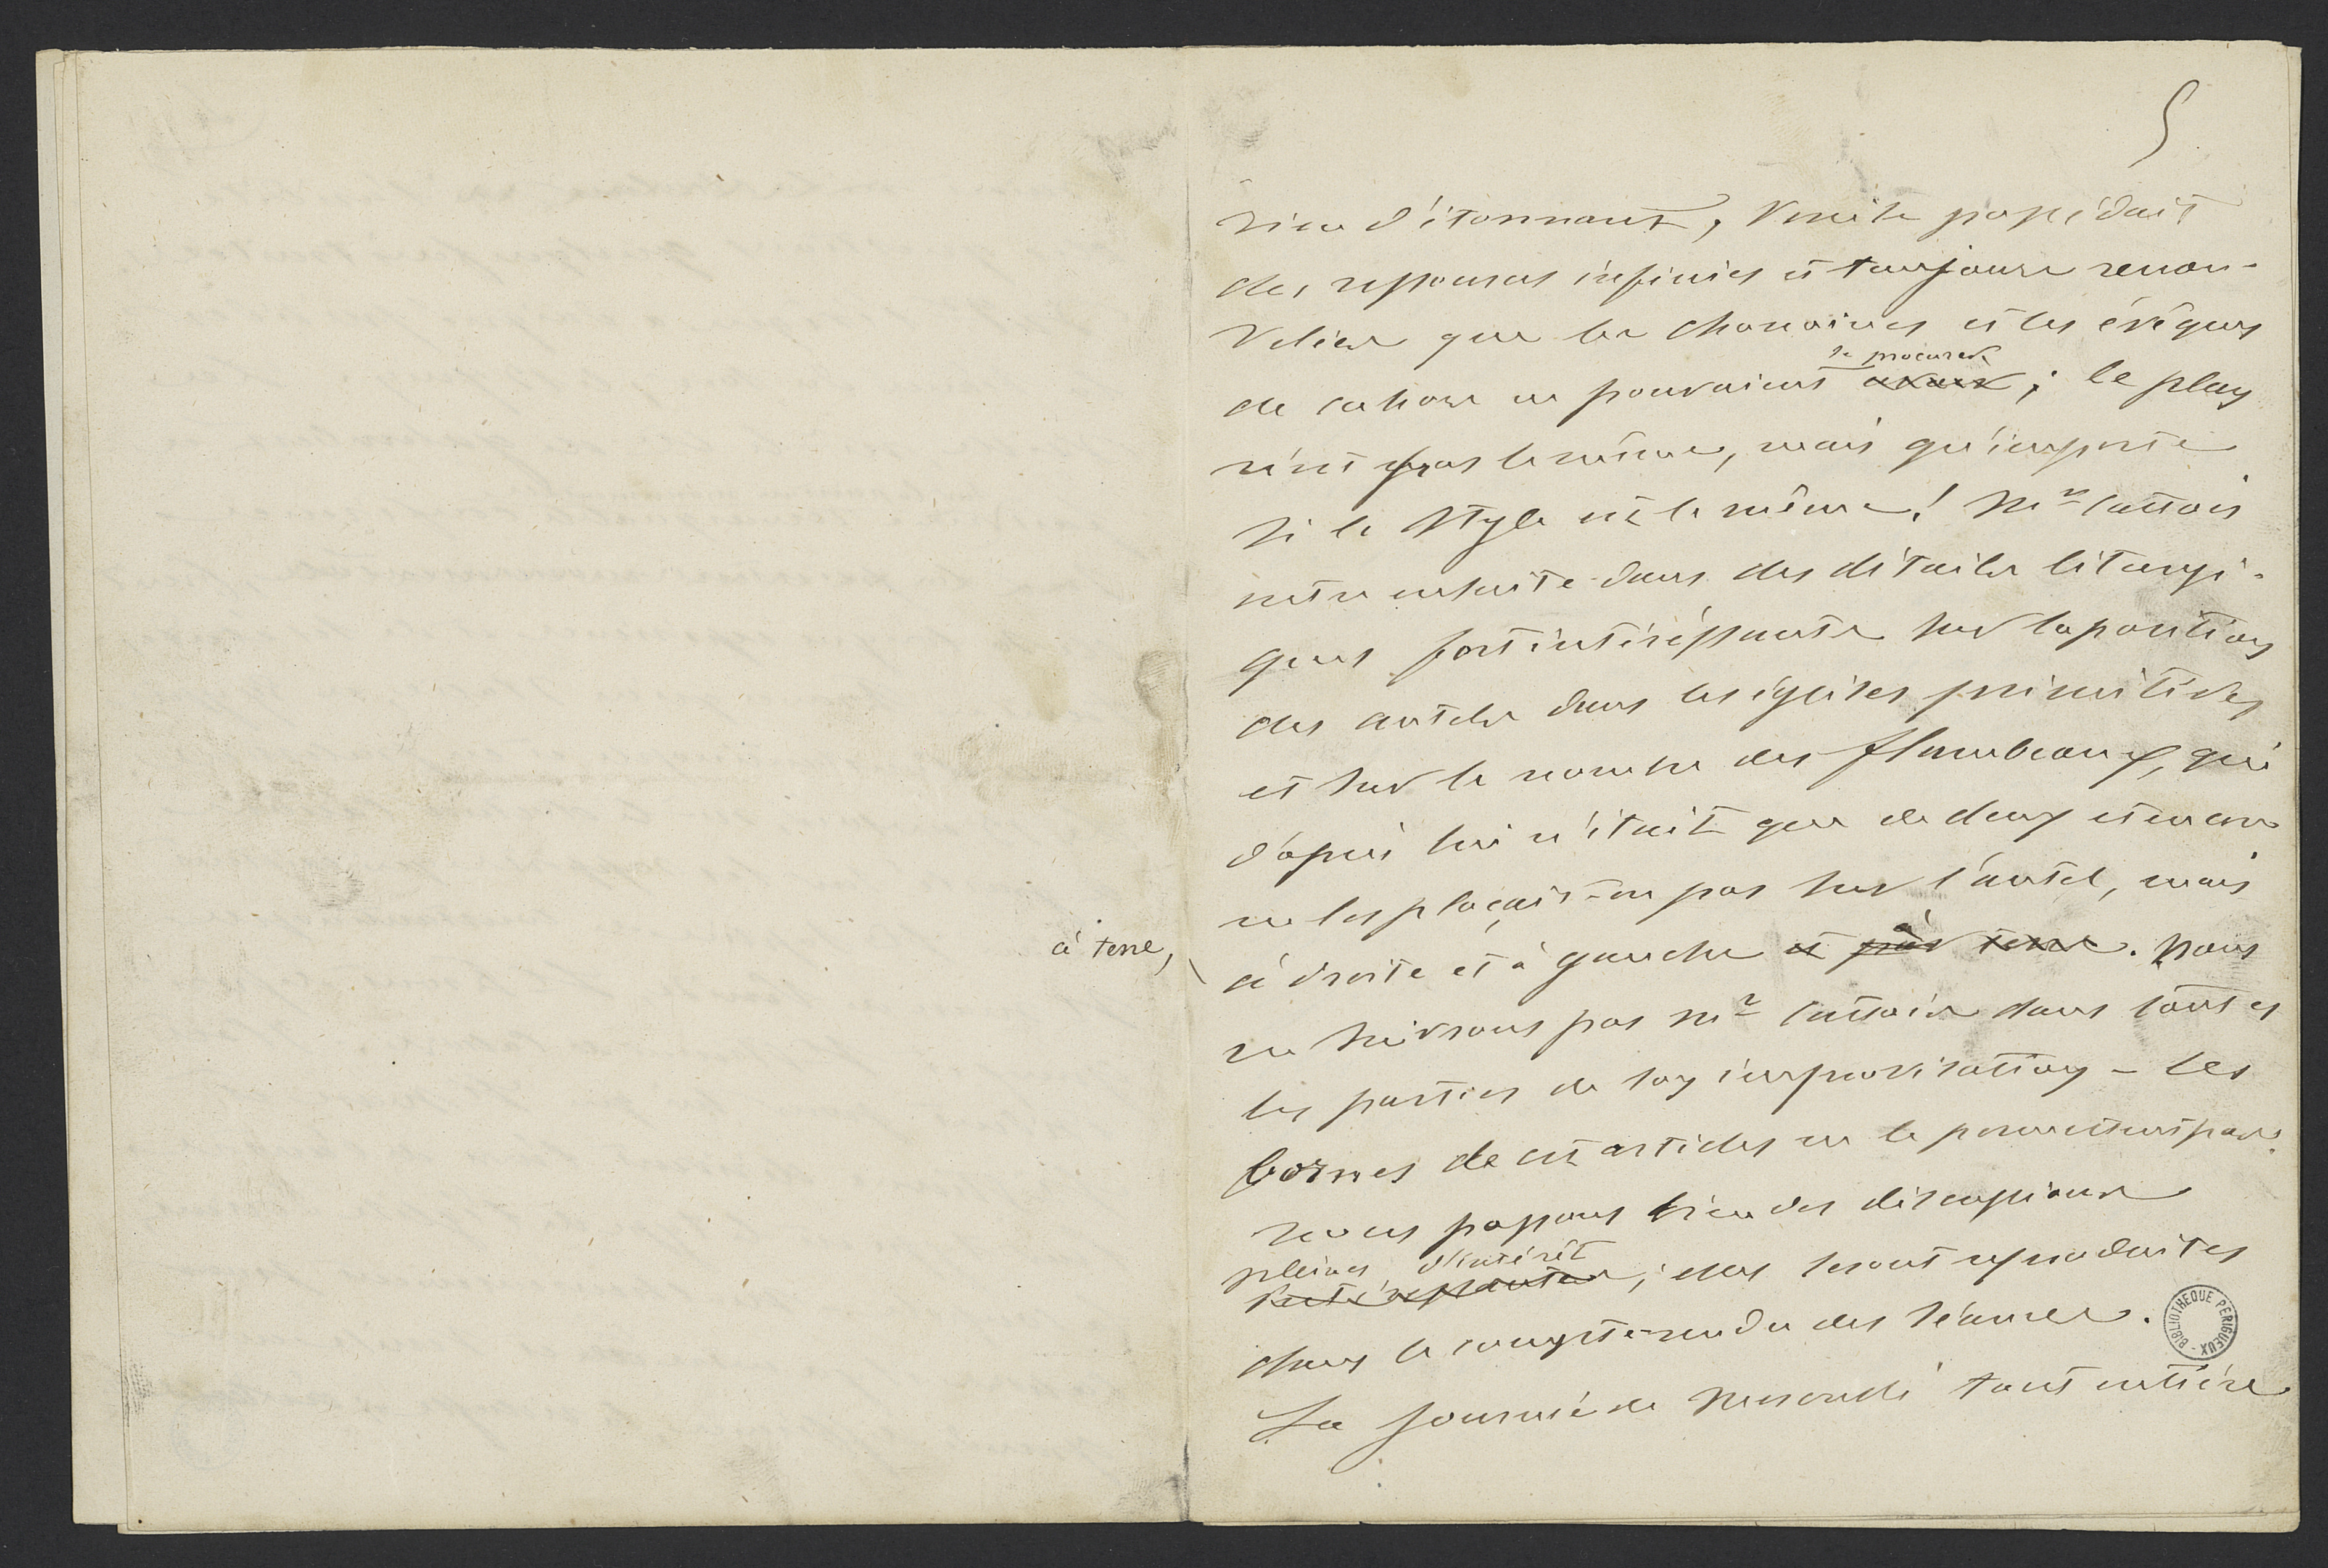 5
rien d'étonnant, Venise possédait
des ressources infinies et toujours renou-
velées que les chanoines et les évêques
de cahors ne pouvaient avoir se procurer ; le plan
n'est pas le même, mais qu'importe
si le style est le même ! Mr Cattois
entre ensuite dans des détails liturgi-
ques fort intéressants sur la position
des autels dans les églises primitives
et sur le nombre des flambeaux, qui
d'après lui n'était que de deux et encore
ne les plaçait-on pas sur l'autel, mais
à terre,
à droite et à gauche et par à terre. Nous
ne suivrons pas Mr Cattois dans toutes
les parties de son improvisation - les
bornes de cet articles ne le permettent pas.
nous passons bien des discussions
pleines d'intérêt
intéressantes ; elles seront reproduites
dans le compte-rendu des séances.
La journée de mercredi tout entière
BIBLIOTHEQUE PERIGUEUX